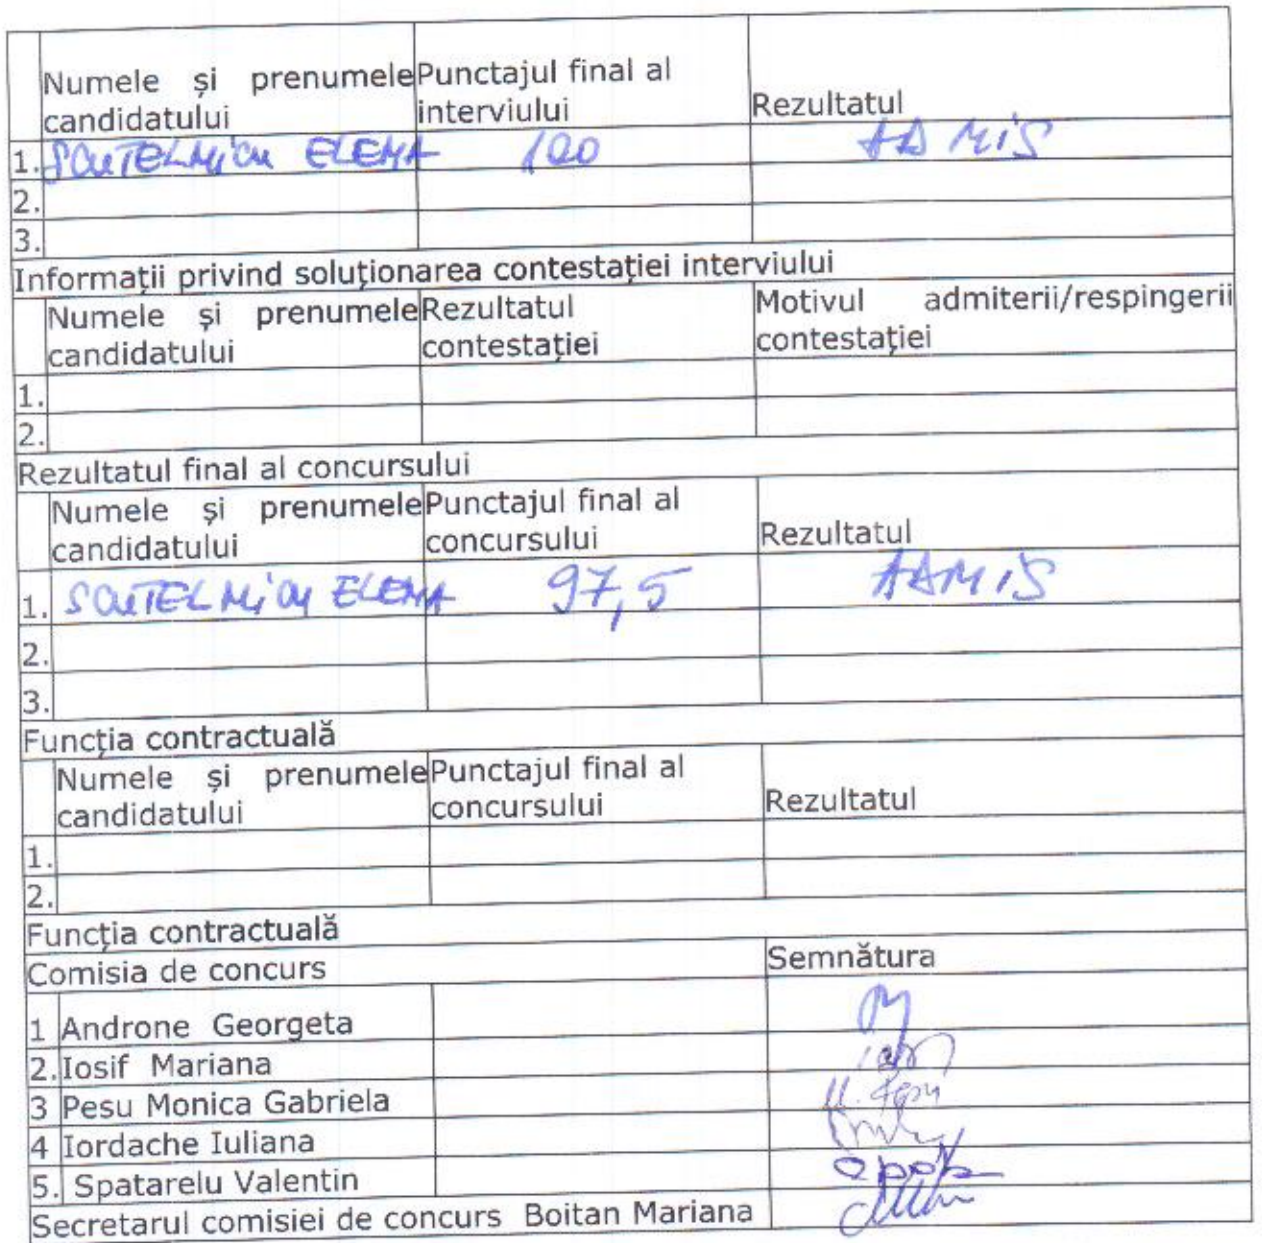 Numele și prenumele candidatului Punctajul final al interviului Rezultatul
1. SCUTELNICU ELENA 100 ADMIS
2.
3.
Informații privind soluționarea contestației interviului
Numele și prenumele candidatului Rezultatul contestației Motivul admiterii/respingerii contestației
1.
2.
Rezultatul final al concursului
Numele și prenumele candidatului Punctajul final al concursului Rezultatul
1. SCUTELNICU ELENA 97,5 ADMIS
2.
3.
Funcția contractuală
Numele și prenumele candidatului Punctajul final al concursului Rezultatul
1.
2.
Funcția contractuală
Comisia de concurs Semnătura
1 Androne Georgeta
2. Iosif Mariana
3 Pesu Monica Gabriela
4 Iordache Iuliana
5. Spatarelu Valentin
Secretarul comisiei de concurs Boitan Mariana